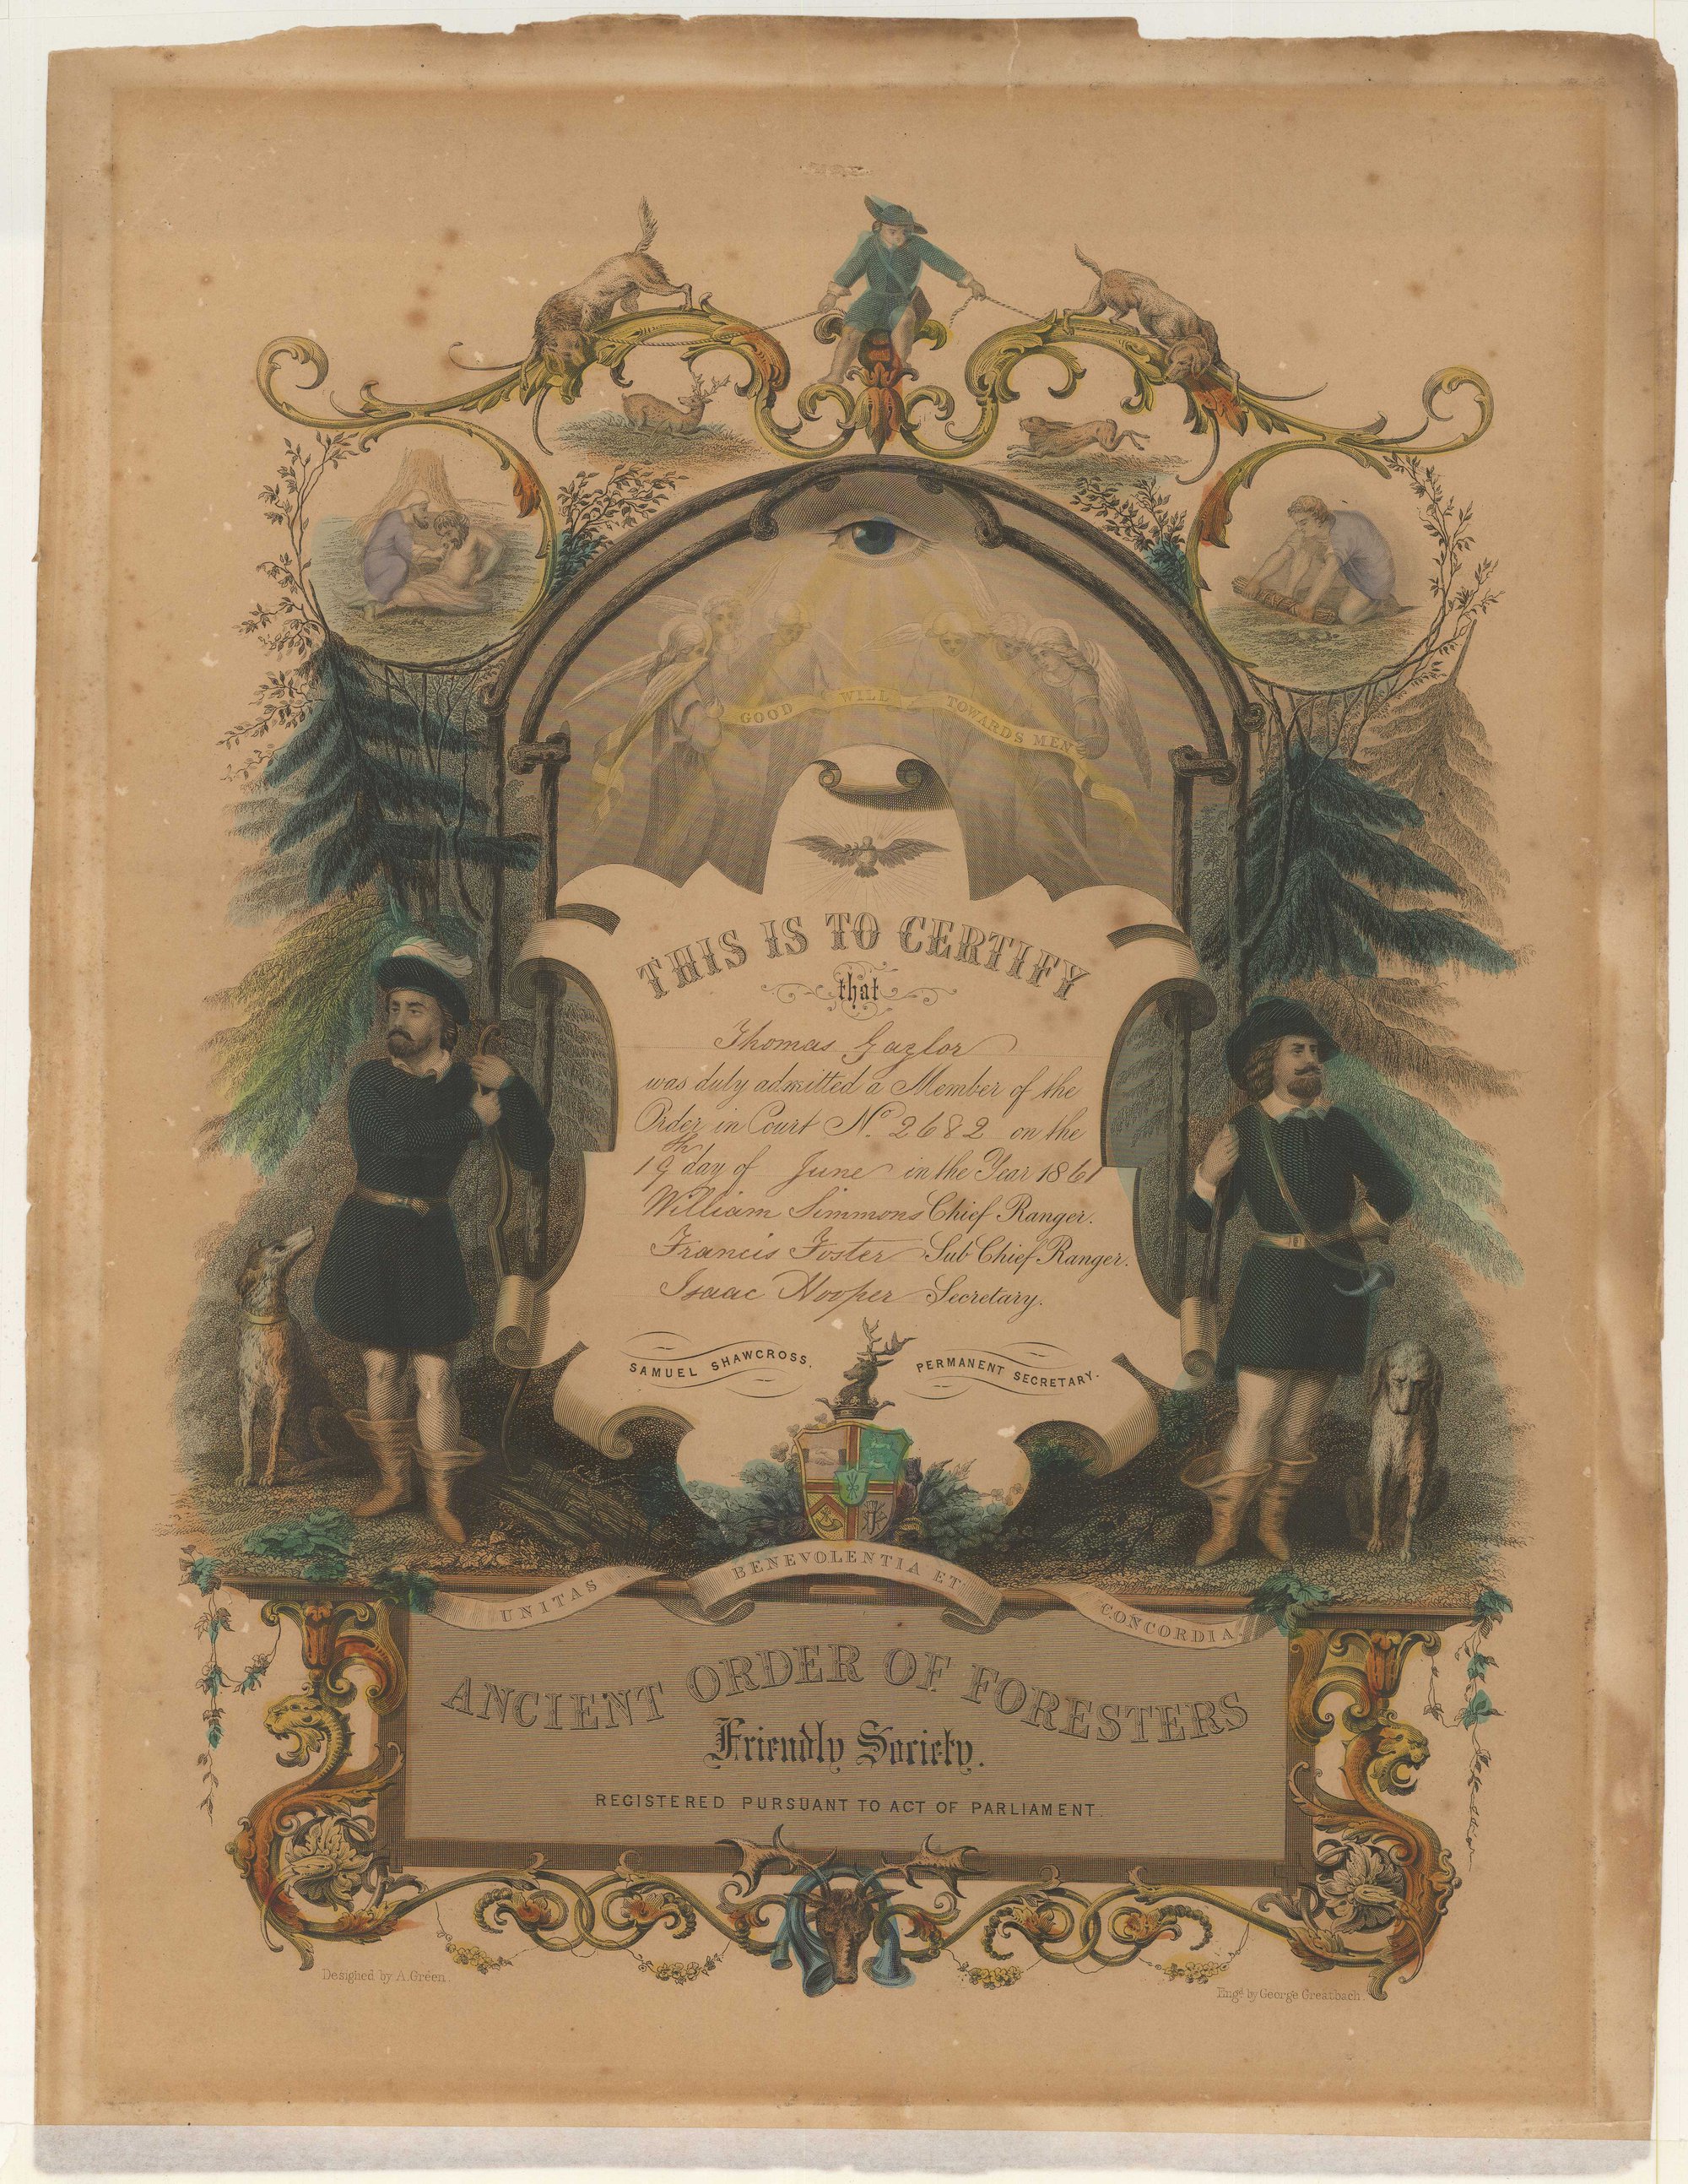 GOOD WILL TOWARDS MEN
THIS IS TO CERTIFY
that
Thomas Gazlor
was duly admitted a Member of the
Order in Court No. 2682 on the
19th day of June in the Year 1861
William Simmons Chief Ranger.
Francis Foster Sub Chief Ranger.
Isaac Hooper Secretary.
SAMUEL SHAWCROSS, PERMANENT SECRETARY.
UNITAS BENEVOLENTIA ET CONCORDIA
ANCIENT ORDER OF FORESTERS
Friendly Society.
REGISTERED PURSUANT TO ACT OF PARLIAMENT.
Designed by A. Green.
Engd by George Greatbach.